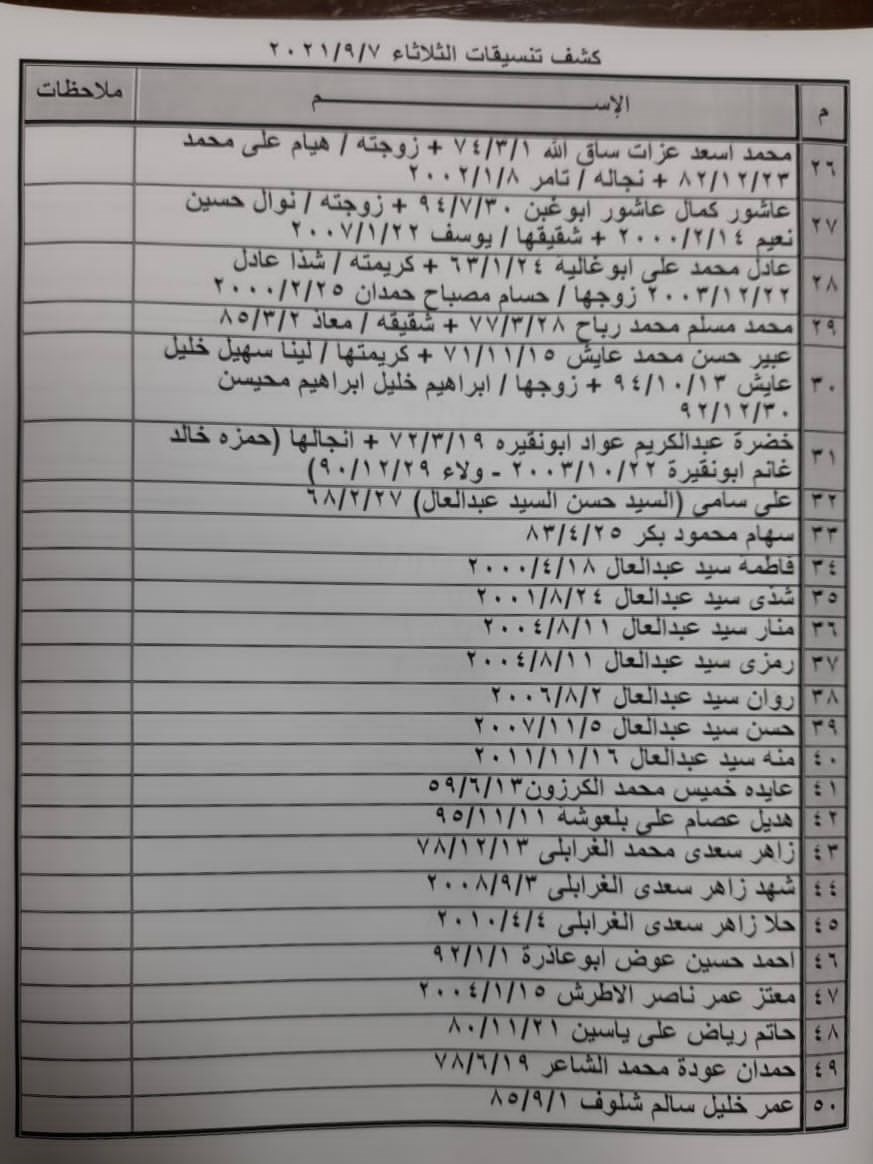 كشف تنسيقات الثلاثاء ٢٠٢١/٩/٧
م الإســـــــــم ملاحظات
٢٦ محمد اسعد عزات ساق الله ٧٤/٣/١ + زوجته / هيام على محمد
٨٢/١٢/٢٣ + نجاله / تامر ٢٠٠٢/١/٨
٢٧ عاشور كمال عاشور ابوغبن ٩٤/٧/٣٠ + زوجته / نوال حسين
نعيم ٢٠٠٠/٢/١٤ + شقيقها / يوسف ٢٠٠٧/١/٢٢
٢٨ عادل محمد على ابوغاليه ٦٣/١/٢٤ + كريمته / شذا عادل
٢٠٠٣/١٢/٢٢ زوجها / حسام مصباح حمدان ٢٠٠٠/٢/٢٥
٢٩ محمد مسلم محمد رباح ٧٧/٣/٢٨ + شقيقه / معاذ ٨٥/٣/٢
٣٠ عبير حسن محمد عايش ٧١/١١/١٥ + كريمتها / لينا سهيل خليل
عايش ٩٤/١٠/١٣ + زوجها / ابراهيم خليل ابراهيم محيسن
٩٢/١٢/٣٠
٣١ خضرة عبدالكريم عواد ابونقيره ٧٢/٣/١٩ + انجالها (حمزه خالد
غانم ابونقيرة ٢٠٠٣/١٠/٢٢ - ولاء ٩٠/١٢/٢٩)
٣٢ على سامى (السيد حسن السيد عبدالعال) ٦٨/٢/٢٧
٣٣ سهام محمود بكر ٨٣/٤/٢٥
٣٤ فاطمة سيد عبدالعال ٢٠٠٠/٤/١٨
٣٥ شذى سيد عبدالعال ٢٠٠١/٨/٢٤
٣٦ منار سيد عبدالعال ٢٠٠٤/٨/١١
٣٧ رمزى سيد عبدالعال ٢٠٠٤/٨/١١
٣٨ روان سيد عبدالعال ٢٠٠٦/٨/٢
٣٩ حسن سيد عبدالعال ٢٠٠٧/١١/٥
٤٠ منه سيد عبدالعال ٢٠١١/١١/١٦
٤١ عايده خميس محمد الكرزون٥٩/٦/١٣
٤٢ هديل عصام على بلعوشة ٩٥/١١/١١
٤٣ زاهر سعدى محمد الغرابلى ٧٨/١٢/١٣
٤٤ شهد زاهر سعدى الغرابلى ٢٠٠٨/٩/٣
٤٥ حلا زاهر سعدى الغرابلى ٢٠١٠/٤/٤
٤٦ احمد حسين عوض ابوعاذرة ٩٢/١/١
٤٧ معتز عمر ناصر الاطرش ٢٠٠٤/١/١٥
٤٨ حاتم رياض على ياسين ٨٠/١١/٢١
٤٩ حمدان عودة محمد الشاعر ٧٨/٦/١٩
٥٠ عمر خليل سالم شلوف ٨٥/٩/١